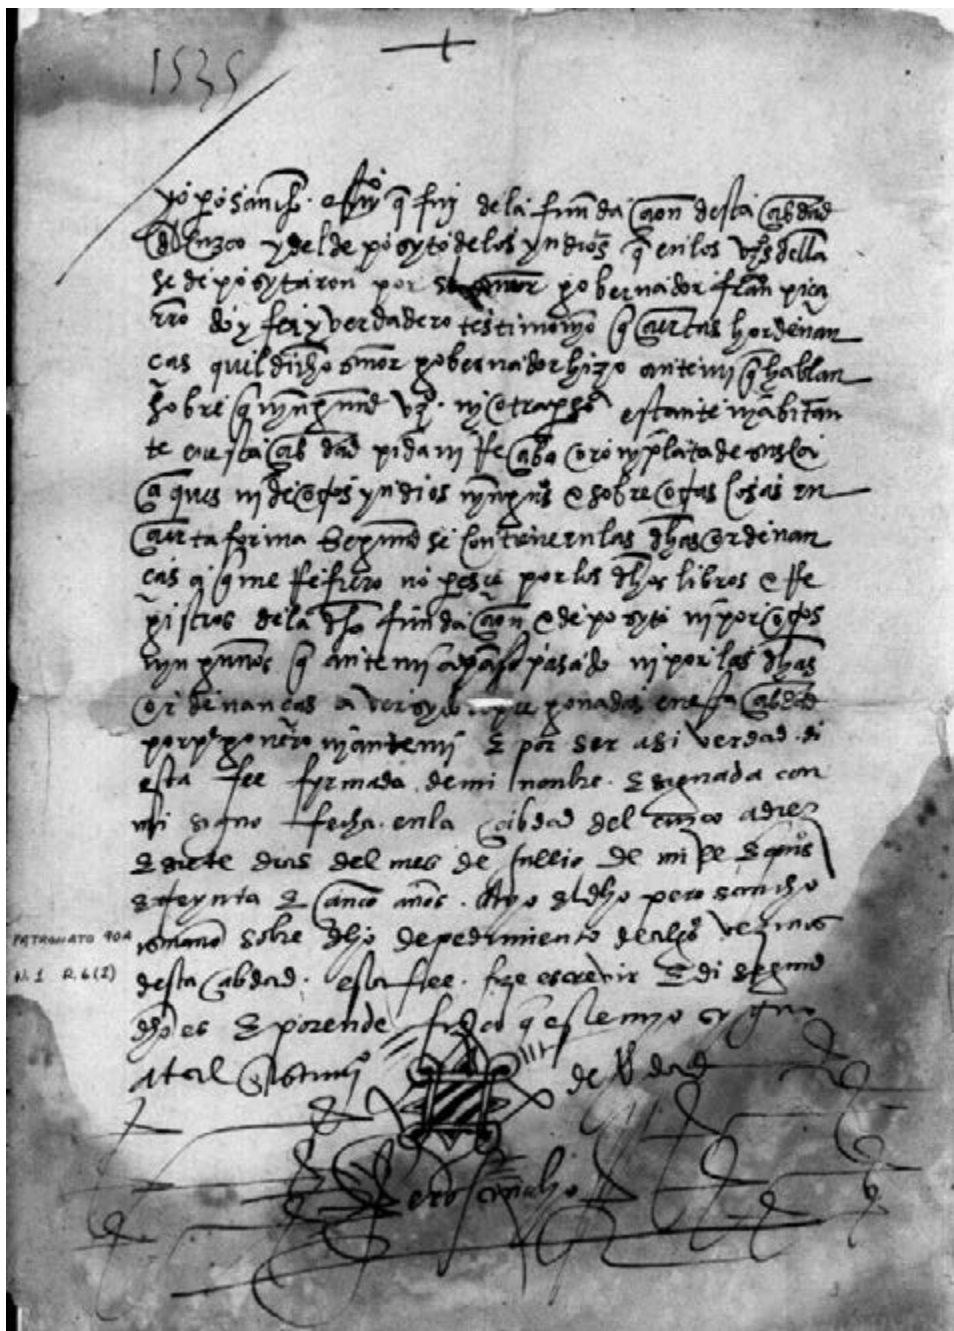 1535
yo po sancho esno q fui de la fundaçion desta çibdad
del cuzco y del deposyto de los yndios q en los vos della
se deposytaron por gobernador fran piça
rro doy fe y verdadero testimonio q çiertas hordenan
ças quel dicho señor gobernador hizo ante mi q hablan
sobre q ningund vo ni otra psona estante ni abitan
te en esta çibdad pida ni oro ni plata de sus ca
çiques ni de otros yndios ningunos e sobre otras cosas en
çierta forma segund se contiene en las dhas ordenan
ças a q me refiero no pareçe por los dhos libros e re
gistros de la dha fundaçion e deposyto ni por otos
ningunos q ante mi pasado ni por las dhas
ordenanças aver sydo pregonadas en esta çibdad
por pregonero ni ante mi e por ser asi verdad di
esta fee fyrmada de mi nonbre e signada con
mi signo fecha en la çibdad del cuzco a diez
e siete dias del mes de jullio de mill e qios
e treynta e çinco años. E yo el dho pero sancho
esno sobre dho de pedimiento de algos vezinos
desta çibdad esta fee fize escrevir e di segund
dho es e por ende fize aq este myo sygno
a tal en testimoo de vdad
Pero sancho
PATRONATO 90A
N.1 R.6(2)